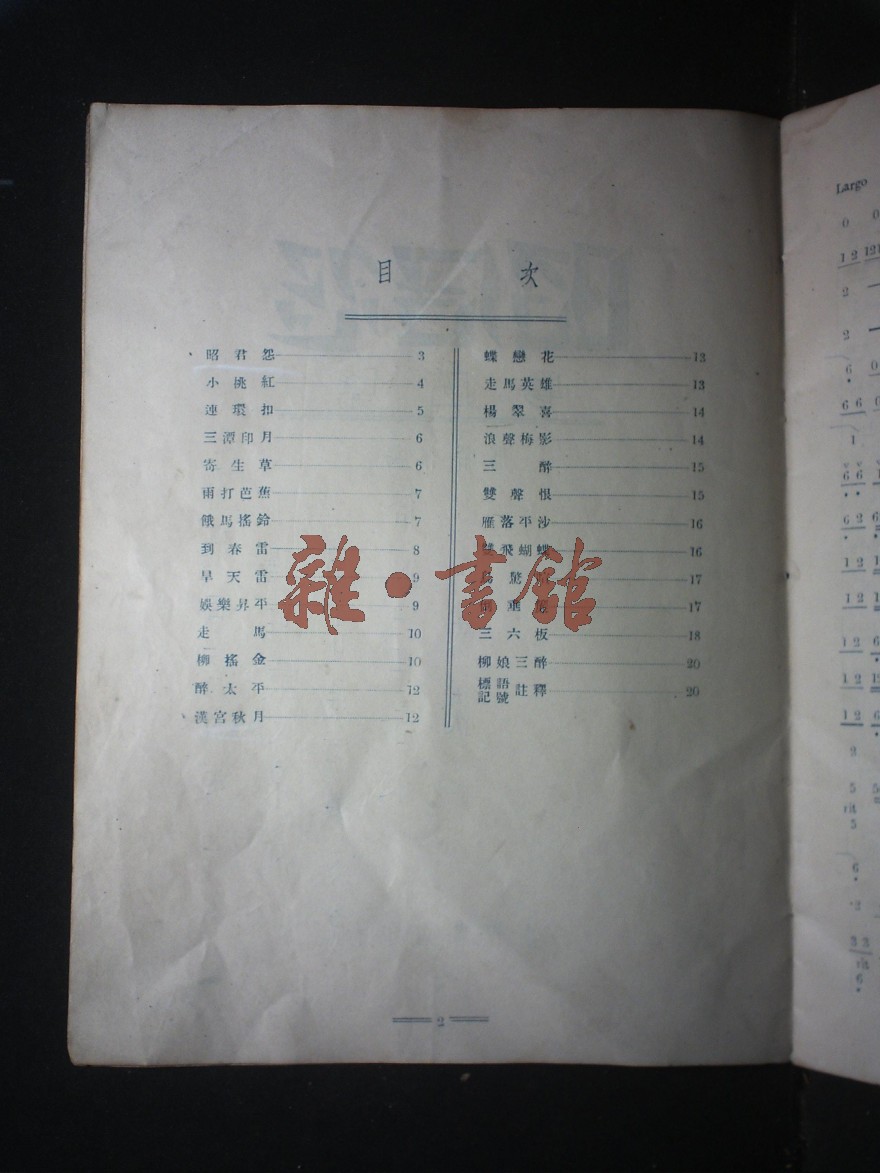 目次
昭君怨 3
小桃紅 4
連環扣 5
三潭印月 6
寄生草 6
雨打芭蕉 7
餓馬搖鈴 7
到春雷 8
旱天雷 9
娛樂昇平 9
走馬 10
柳搖金 10
醉太平 12
漢宮秋月 12
蝶戀花 13
走馬英雄 13
楊翠喜 14
浪聲梅影 14
三醉 15
雙聲恨 15
雁落平沙 16
飛蝴蝶 16
驚 17
垂 17
三六板 18
柳娘三醉 20
標語記號註釋 20
2
雜·書館
Largo